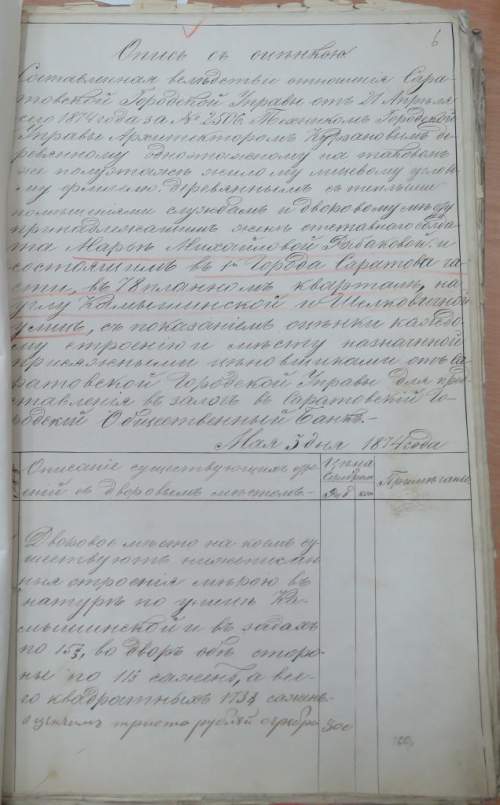 6
Опись съ оцѣнкою
Составленная вслѣдствіи отношенія Сара-
товской Городской Управы отъ 21 Апрѣля
сего 1874 года за № 2506 Техникомъ Городской
Управы Архитекторомъ де-
ревянному одноэтажному на таковомъ
же полуэтажѣ жилому лицевому угло-
му флигелю деревяннымъ съ теплыми
помѣщеніями службамъ и дворовому мѣсту
принадлежащимъ женѣ отставного солда-
та Марьѣ Михайловой Рыбаковой и
состоящимъ въ 1й Города Саратова ча-
сти, въ 78 планномъ кварталѣ, на
углу Камышинской и Шелковичной
улицъ, съ показаніемъ оцѣнки каждо-
му строенію и мѣсту назначенной
присяжными цѣновщиками отъ Са-
ратовской Городской Управы для пред-
ставленія въ залогъ въ Саратовскій Го-
родской Общественный Банкъ.
Мая 3 дня 1874 года
Описаніе существующихъ стро-
еній съ дворовымъ мѣстомъ.
Цѣна
Серебром
Руб коп
Примѣчаніе
Дворовое мѣсто на коемъ су-
ществуютъ нижеписан-
ныя строенія мѣрою въ
натурѣ по улицѣ Ка-
мышинской и въ задахъ
по во дворъ обѣ сторо-
ны по саженъ, а все-
го квадратныхъ сажень
оцѣнимъ триста рублей серебро
300